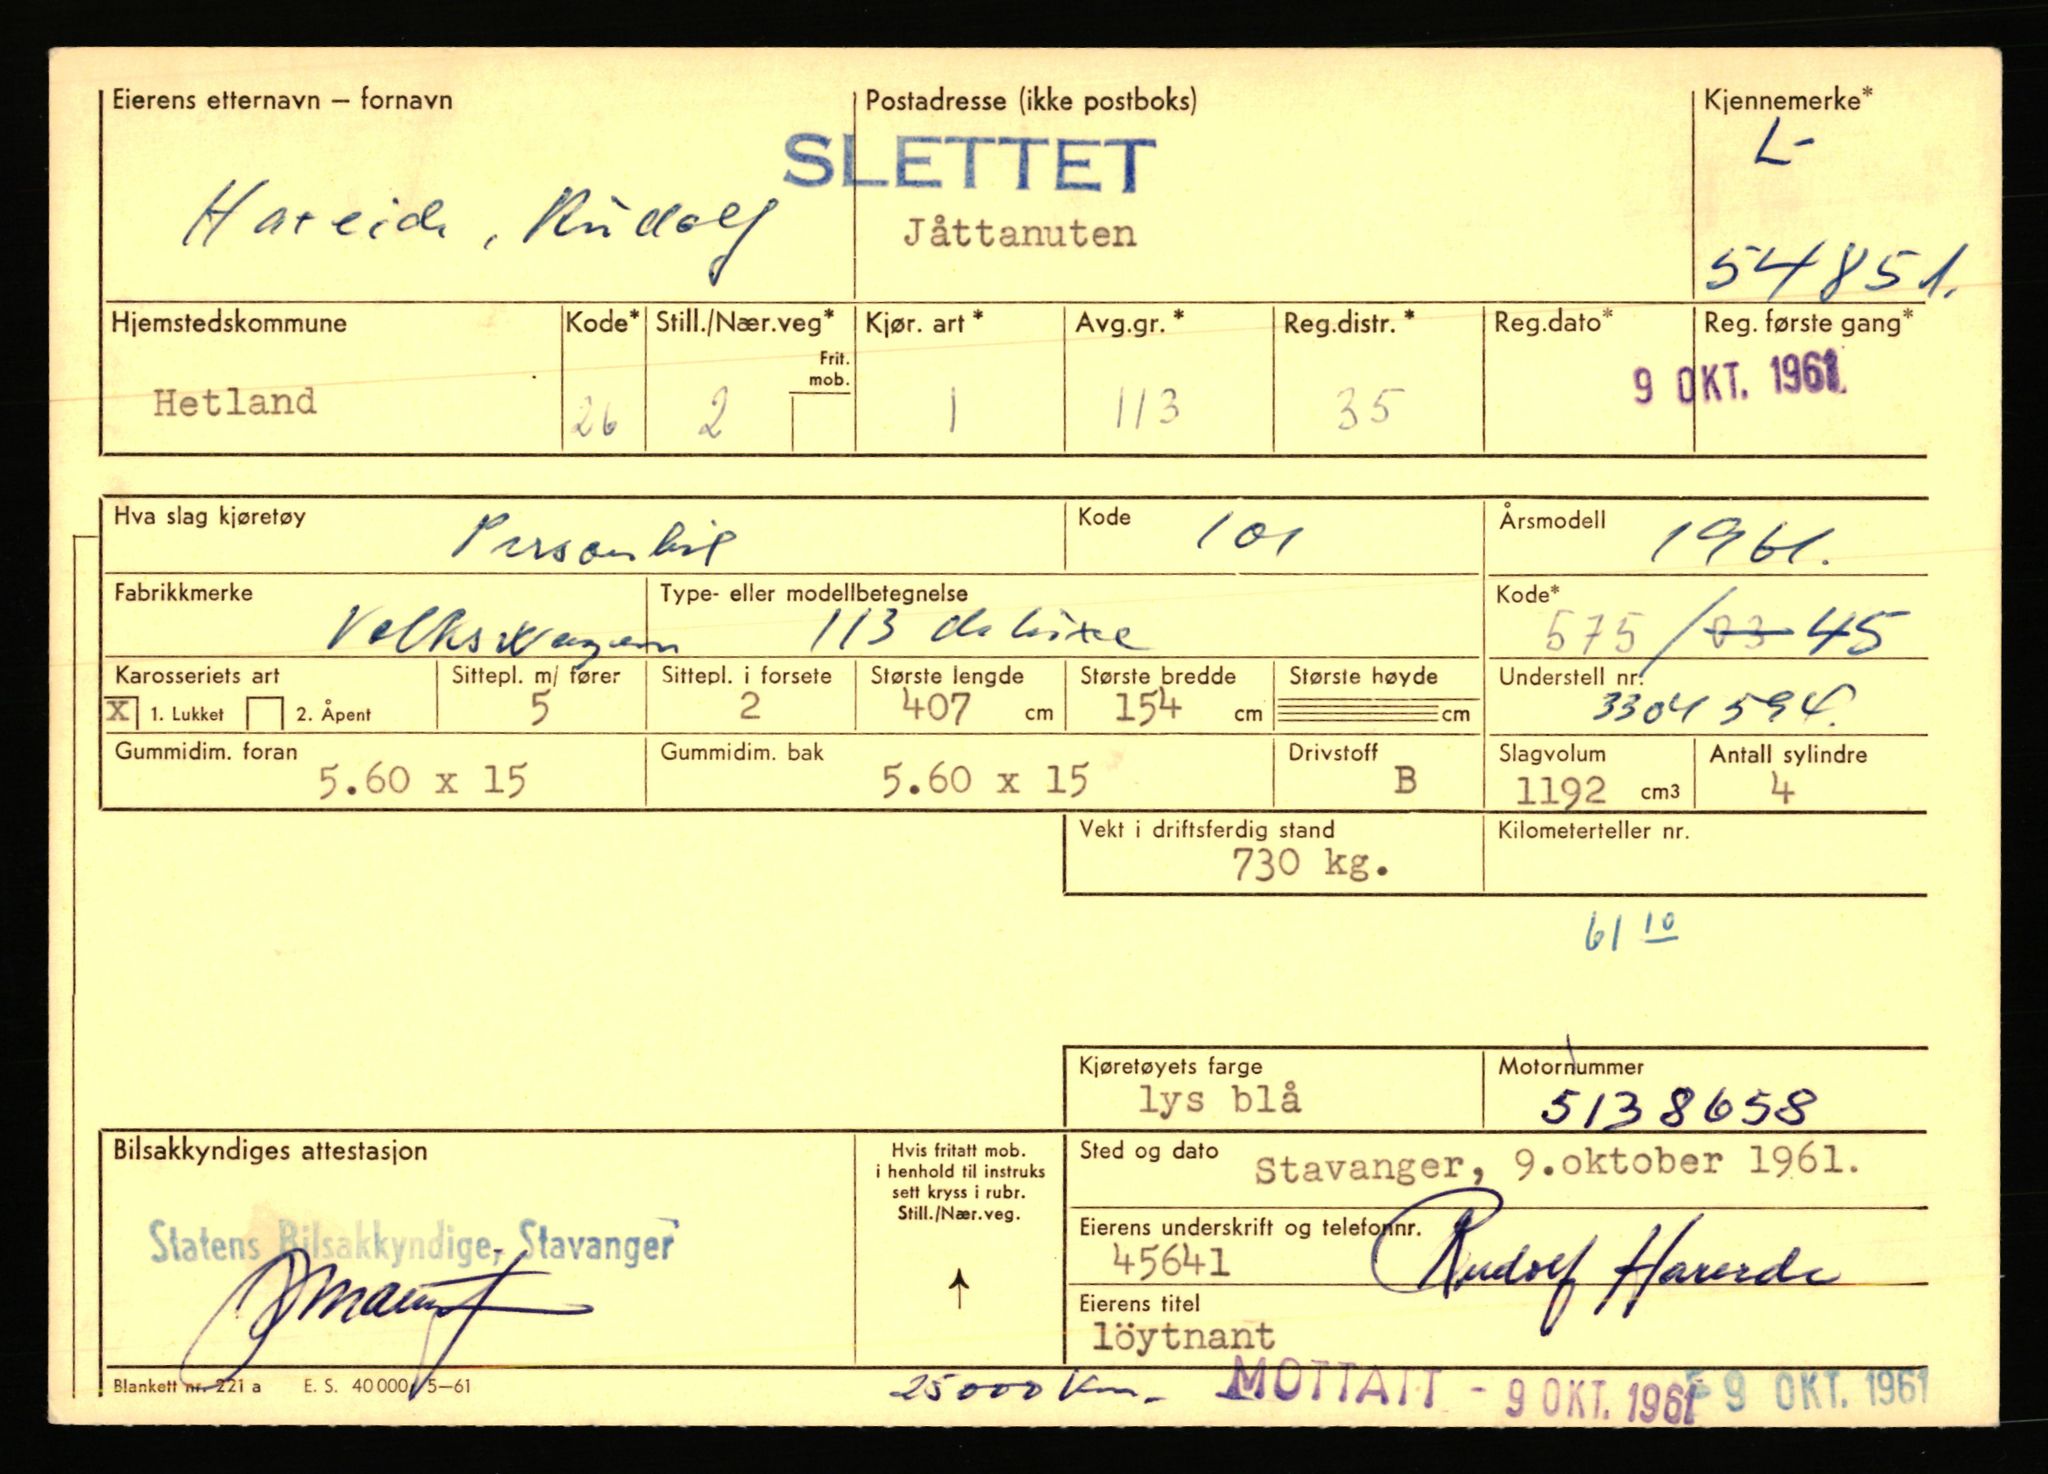 Eierens etternavn – fornavn Postadresse (ikke postboks) Kjennemerke*
SLETTET L-
Hareide, Rudolf Jåttanuten 54851.
Hjemstedskommune Kode* Still./Nær.veg* Kjør. art* Avg.gr.* Reg.distr.* Reg.dato* Reg. første gang*
Frit. mob.
Hetland 26 2 1 113 35 9 OKT. 1961
Hva slag kjøretøy Personbil Kode 101 Årsmodell 1961.
Fabrikkmerke Type- eller modellbetegnelse Kode*
Volkswagen 113 de luxe 575 / 03 45
Karosseriets art Sittepl. m/ fører Sittepl. i forsete Største lengde Største bredde Største høyde Understell nr.
X 1. Lukket 2. Åpent 5 2 407 cm 154 cm cm 3304 594.
Gummidim. foran Gummidim. bak Drivstoff Slagvolum Antall sylindre
5.60 x 15 5.60 x 15 B 1192 cm3 4
Vekt i driftsferdig stand Kilometerteller nr.
730 kg.
61 10
Kjøretøyets farge Motornummer
lys blå 5138658
Bilsakkyndiges attestasjon
Statens Bilsakkyndige, Stavanger
Hvis fritatt mob.
i henhold til instruks
sett kryss i rubr.
Still./Nær.veg.
Sted og dato Stavanger, 9.oktober 1961.
Eierens underskrift og telefonnr.
45641 Rudolf Hareide
Eierens titel
löytnant
Blankett nr. 221 a E. S. 40 000 5–61 25000 km. MOTTATT - 9 OKT. 1961 9 OKT. 1961